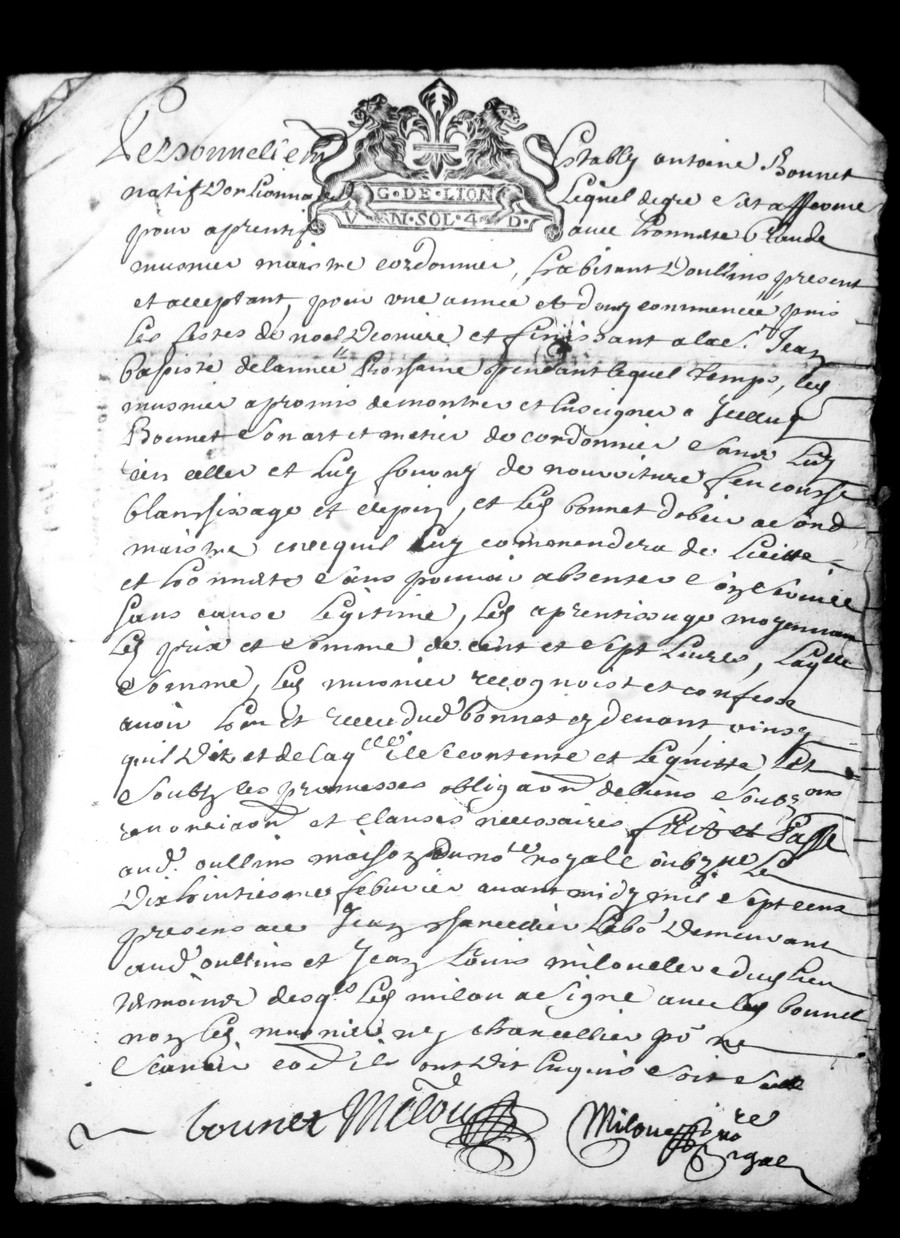 Personnellem Estably antoine Bonnet
natif D'orlionna Lequel de gre sest afferme
pour aprentif avec honneste Claude
musnier maistre cordonnier, habitant Doullins present
et acceptant, pour une année et demy commencée puis
les festes de noel Derniere et finissant a la st Jean
baptiste de lannée prochaine pendant lequel temps, led
musnier a promis de montrer et Enseigner a
Bonnet son art et metier de cordonnier sans luy
rien celler et luy fournir de nourriture
blanchissage et et led bonnet dobeir a son d
maistre en ce quil luy commandera de licitte
et honneste sans pouvoir absenter son service
sans cause Legitime, led aprentissage moyennant
Le prix et somme de cent et sept Livres, laqlle
somme, led musnier recognoist et confesse
avoir heu et receu dud bonnet cy devant, ainsy
quil Dit et de laqlle il se contente et le quitte,
soubz les promesses obligaons soubzons
renonciaon et clauses necessaires fait et Passé
aud. oullins maison du nore royal soubzné Le
Dix huictiesme febvrier avant midy mil sept cens
presens Jean chancellier Labor Demeurant
aud oullins et Jean Louis milou clerc dud lieu
temoins desqls led milou a signé avec led bonnet
non led musnier ny chancellier pr ne
scavoir ont Dit Enquis soit
bounet Milou
Miloue nore
rgal
G·DE·LION
V·N·SOL·4·D·